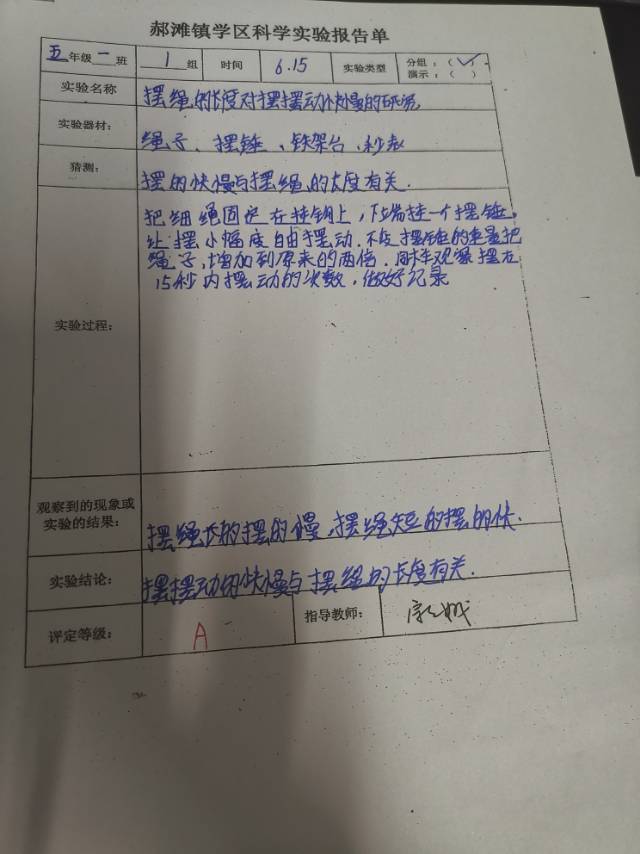 郝滩镇学区科学实验报告单
五年级一班 1组 时间 6.15 实验类型 分组：（✓）
演示：（ ）
实验名称 摆绳的长度对摆摆动快慢的研究
实验器材： 绳子、摆锤、铁架台、秒表
猜测： 摆的快慢与摆绳的长度有关.
实验过程：
把细绳固定在挂钩上，下端挂一个摆锤，
让摆小幅度自由摆动.不改摆锤的重量把
绳子，增加到原来的两倍.同样观察摆在
15秒内摆动的次数，做好记录
观察到的现象或
实验的结果：
摆绳长的摆的慢，摆绳短的摆的快.
实验结论： 摆摆动的快慢与摆绳的长度有关.
评定等级： A 指导教师：